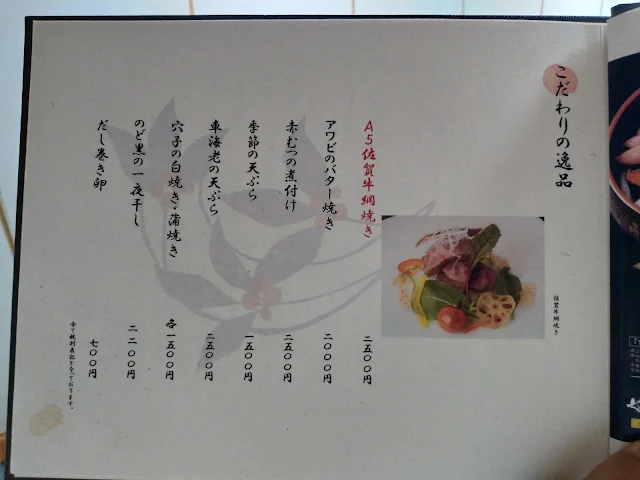 こだわりの逸品
佐賀牛網焼き
A5佐賀牛網焼き
二五〇〇円
アワビのバター焼き
二〇〇〇円
赤むつの煮付け
二五〇〇円
季節の天ぷら
一五〇〇円
車海老の天ぷら
二五〇〇円
穴子の白焼き・蒲焼き
各一五〇〇円
のど黒の一夜干し
二二〇〇円
だし巻き卵
七〇〇円
全て税別表記となっております。